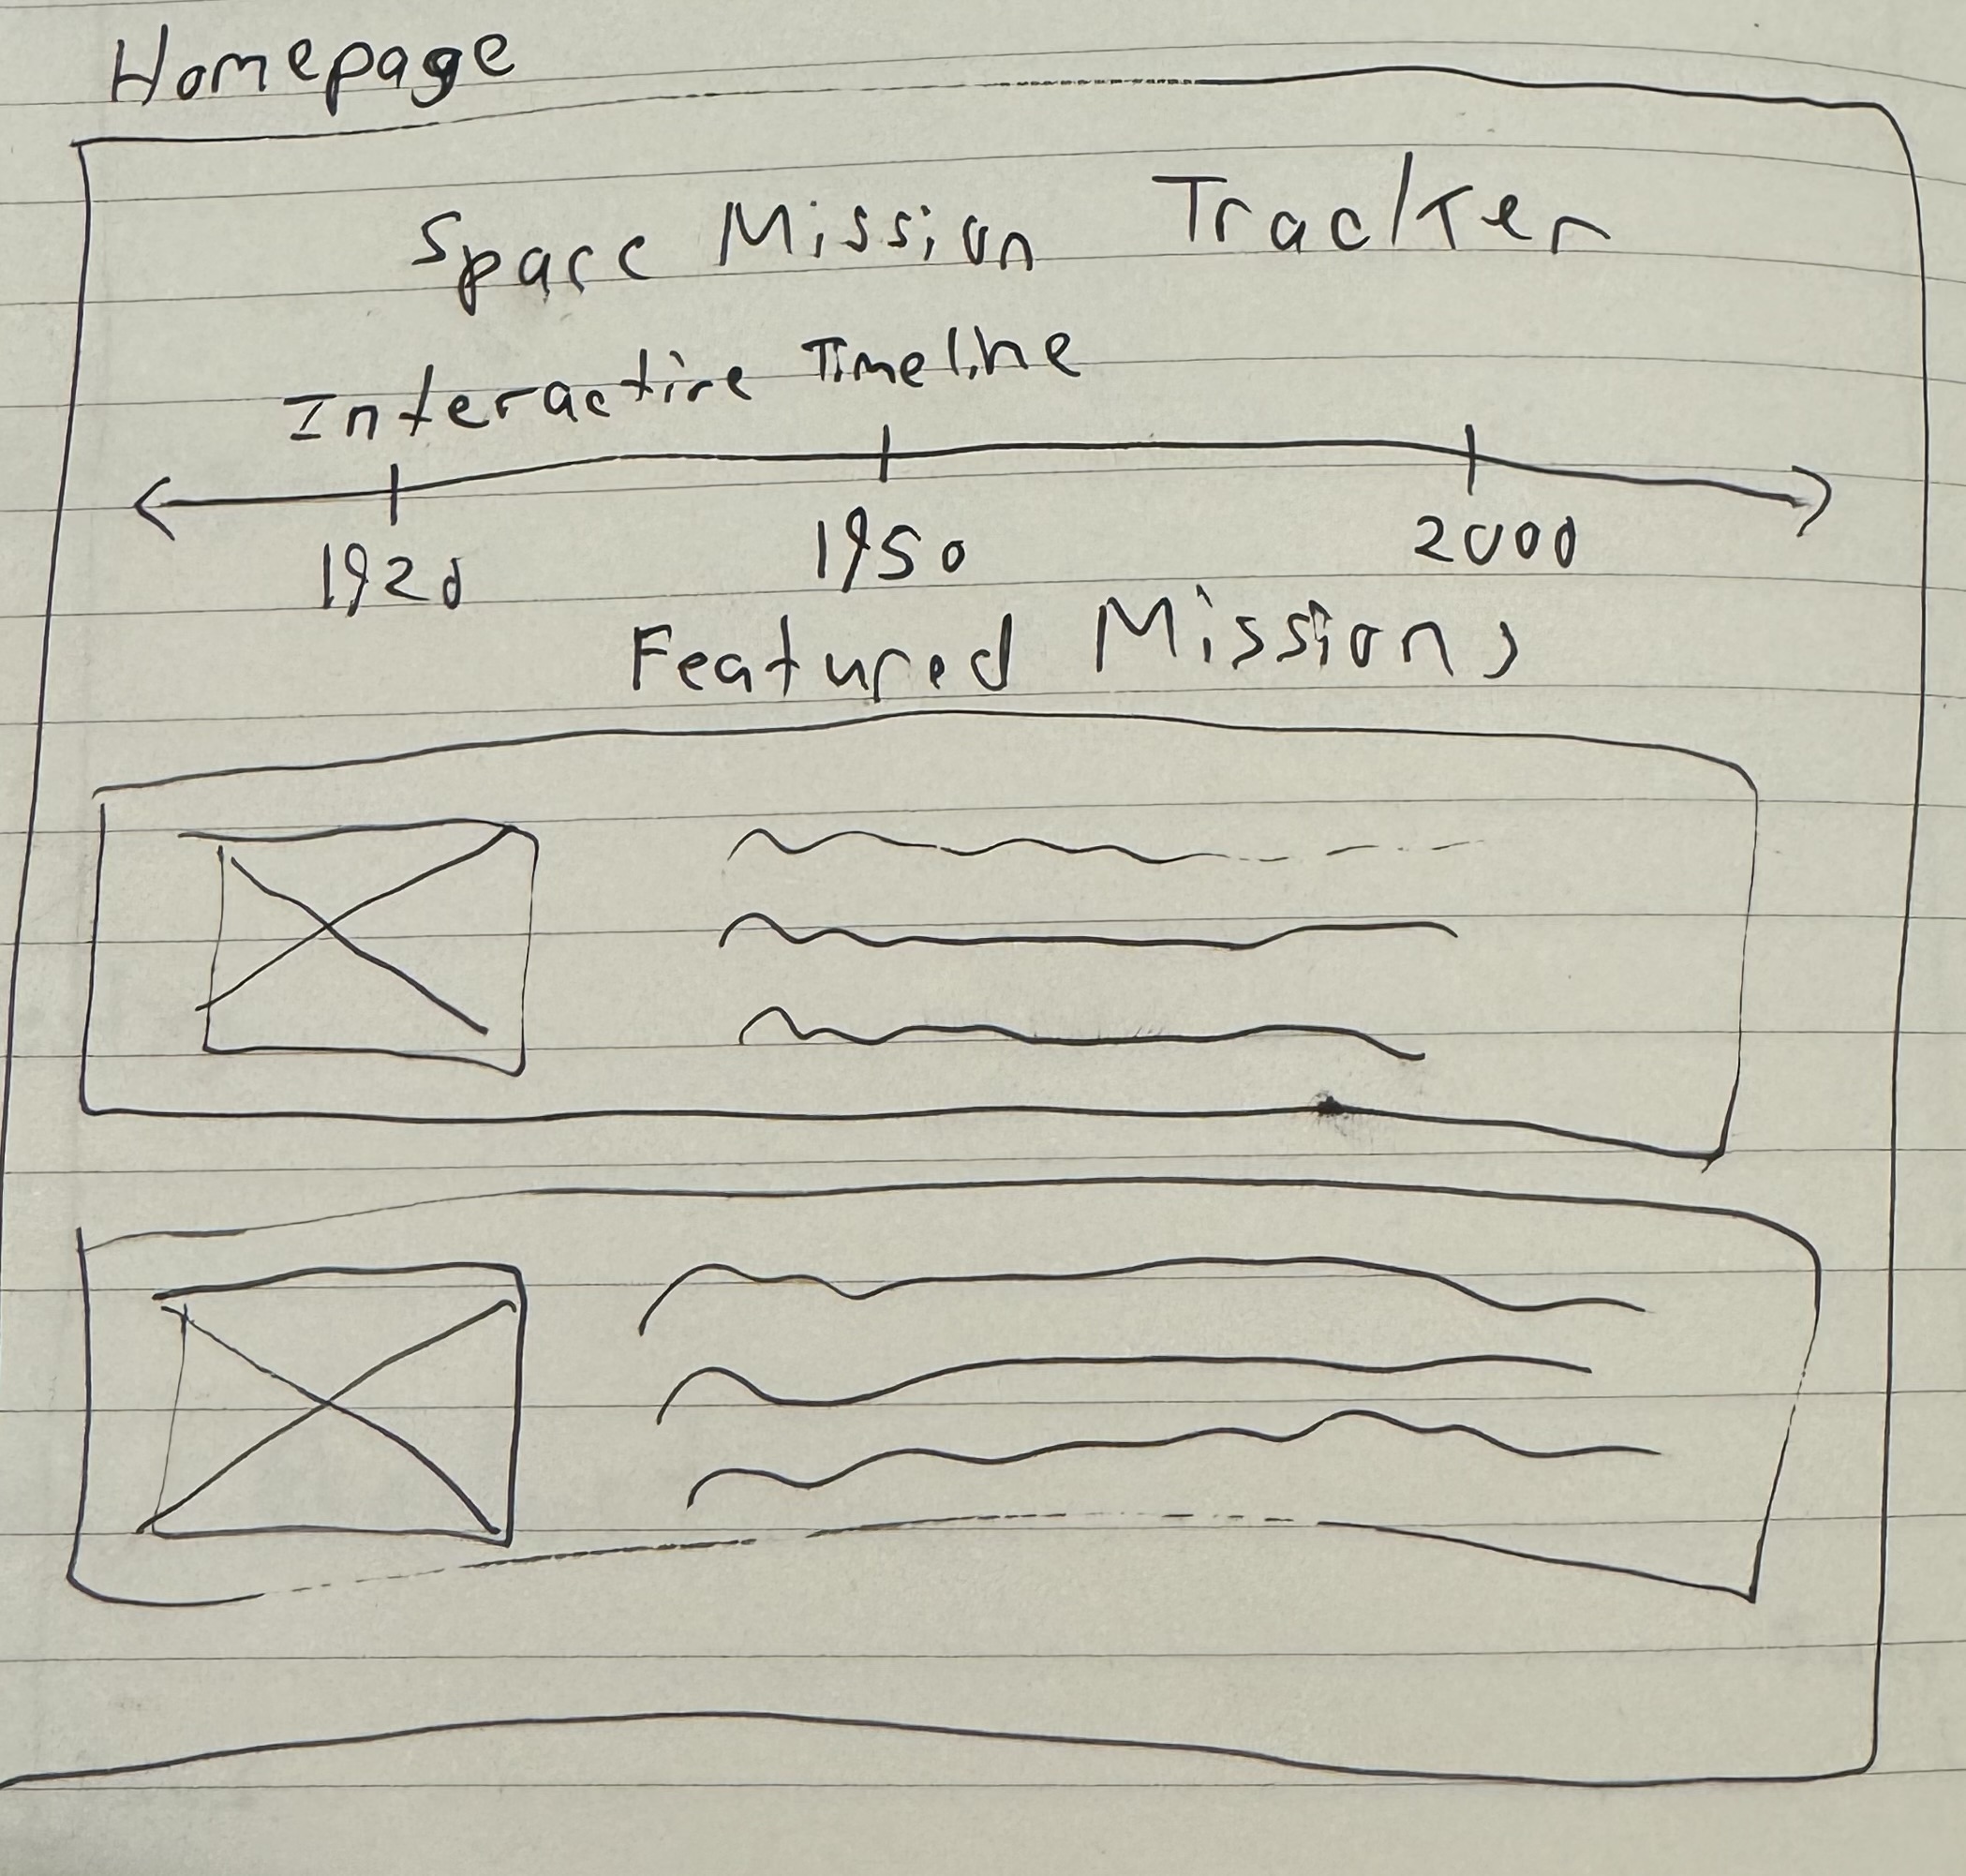 Homepage
Space Mission Tracker
Interactive Timeline
1920 1950 2000
Featured Missions